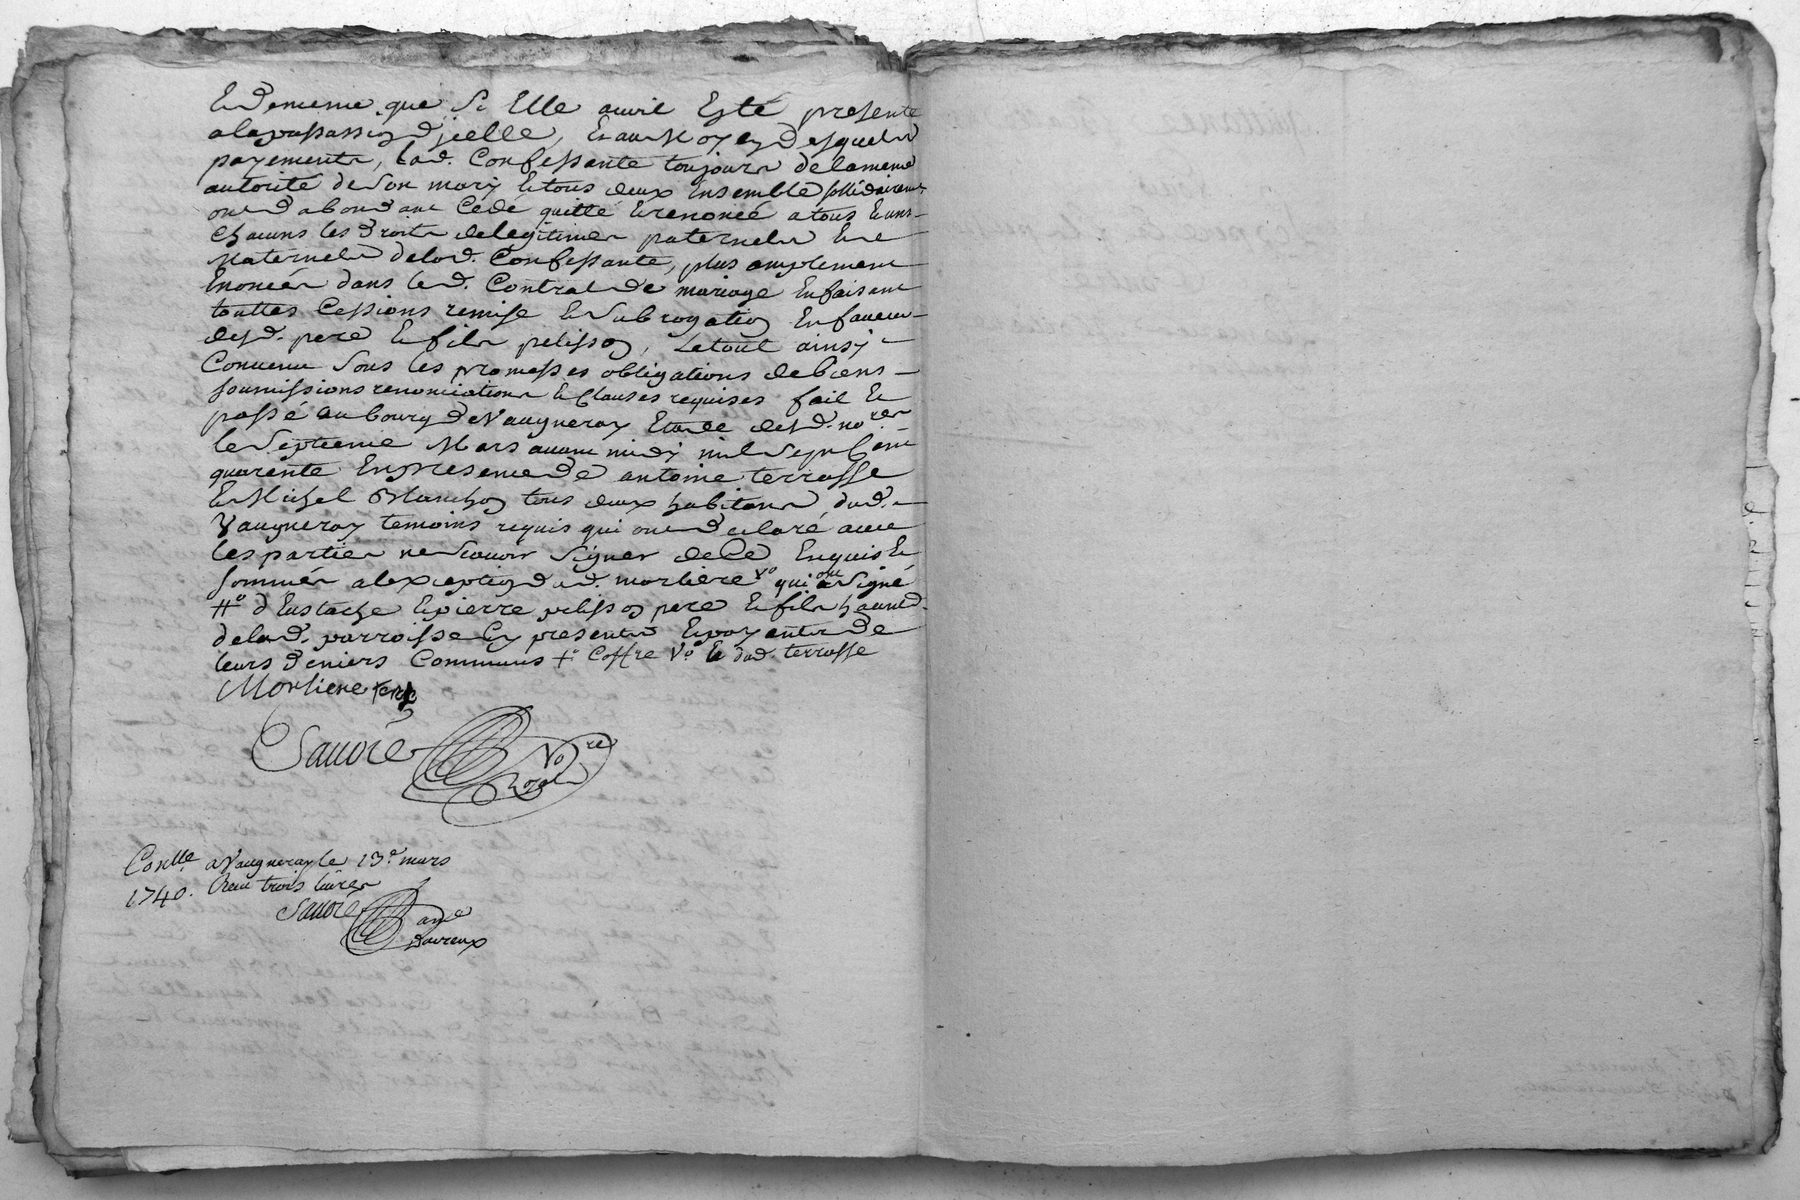 Et de meme que si Elle auoit Esté presente
a la passassion d'jcelle, Et au Moyen desquels
payements, lad. Confessante toujours de la meme
autorite de son mary Et tous deux Ensemble sollidairemt
ont d'abondant Cedé quitté Et renoncé a tous Et uns
chacuns les droits de legitimes paternels Et
Maternels de lad. Confessante, plus amplement
Enoncés dans led. Contrat de mariage En faisant
touttes Cessions remise Et subrogation En faueur
desd. pere Et fils pelisson, Le tout ainsy
Conuenu sous les promesses obligations de biens
soumissions renonciations Et Clauses requises fait Et
passé au bourg de Vaugneray Etude desd. nores
le septieme Mars auant midy mil sept Cent
quarente En presence de antoine terrasse
Et Michel Blanchon tous deux habitans dud.
Vaugneray temoins requis qui ont declaré auec
les parties ne scauoir signer de Ce Enquis Et
sommés a l'exception dud. morliere Vo qui ont signé
#o d'Eustache Et pierre pelisson pere Et fils habitd.
de lad. parroisse Cy presents Et payants de
leurs deniers Communs +o Coffre Vo Et dud. terrasse
Morliere
Sauoie No re
Royal
Conlle. a Vaugneray le 13e mars
1740. Receu trois liures
Sauoie